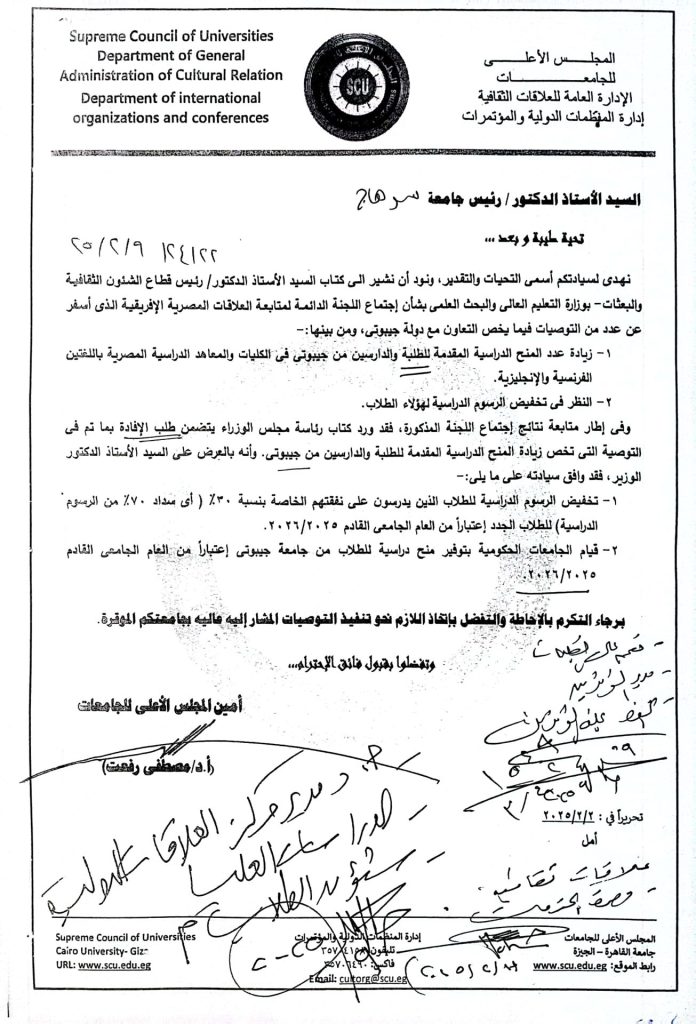 Supreme Council of Universities
Department of General
Administration of Cultural Relation
Department of international
organizations and conferences
SCU
المجلس الأعلى
للجامعات
الإدارة العامة للعلاقات الثقافية
إدارة المنظمات الدولية والمؤتمرات
السيد الأستاذ الدكتور/ رئيس جامعة سوهاج
تحية طيبة و بعد ...
٢٥/٢/٩
نهدى لسيادتكم أسمى التحيات والتقدير، ونود أن نشير الى كتاب السيد الأستاذ الدكتور/ رئيس قطاع الشئون الثقافية
والبعثات- بوزارة التعليم العالى والبحث العلمى بشأن إجتماع اللجنة الدائمة لمتابعة العلاقات المصرية الإفريقية الذى أسفر
عن عدد من التوصيات فيما يخص التعاون مع دولة جيبوتى، ومن بينها:-
١- زيادة عدد المنح الدراسية المقدمة للطلبة والدارسين من جيبوتى فى الكليات والمعاهد الدراسية المصرية باللغتين
الفرنسية والإنجليزية.
٢- النظر فى تخفيض الرسوم الدراسية لهؤلاء الطلاب.
وفى إطار متابعة نتائج إجتماع اللجنة المذكورة، فقد ورد كتاب رئاسة مجلس الوزراء يتضمن طلب الإفادة بما تم فى
التوصية التى تخص زيادة المنح الدراسية المقدمة للطلبة والدارسين من جيبوتى. وأنه بالعرض على السيد الأستاذ الدكتور
الوزير، فقد وافق سيادته على ما يلى:-
١- تخفيض الرسوم الدراسية للطلاب الذين يدرسون على نفقتهم الخاصة بنسبة ٣٠٪ ( أى سداد ٧٠٪ من الرسوم
الدراسية) للطلاب الجدد إعتباراً من العام الجامعى القادم ٢٠٢٦/٢٠٢٥.
٢- قيام الجامعات الحكومية بتوفير منح دراسية للطلاب من جامعة جيبوتى إعتباراً من العام الجامعى القادم
٢٠٢٦/٢٠٢٥.
برجاء التكرم بالإحاطة والتفضل بإتخاذ اللازم نحو تنفيذ التوصيات المشار إليه عاليه بجامعتكم الموقرة.
وتفضلوا بقبول فائق الإحترام،،،
أمين المجلس الأعلى للجامعات
(أ.د/مصطفى رفعت)
د مدير مركز العلاقات الدولية
- الدراسات العليا
- شئون الطلاب
تحريراً في : ٢٠٢٥/٢/٢
أمل
علاقات ثقافية
Supreme Council of Universities
Cairo University- Giz
URL: www.scu.edu.eg
إدارة المنظمات الدولية والمؤتمرات
تليفون
فاكس:
Email: cultorg@scu.eg
المجلس الأعلى للجامعات
جامعة القاهرة – الجيزة
رابط الموقع: www.scu.edu.eg